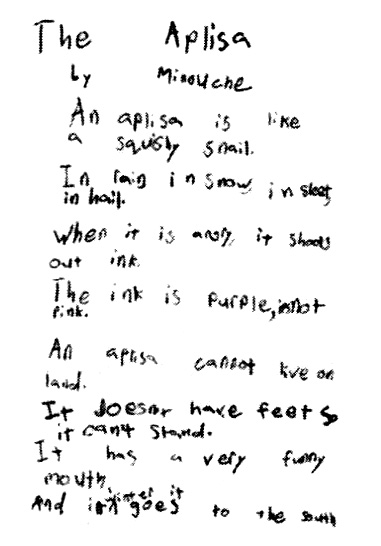 The Aplisa
by Minouche
An aplisa is like
a squishy snail.
In rain in snow, in sleet,
in hail.
When it is angry, it shoots
out ink.
The ink is purple, its not
pink.
An aplisa cannot live on
land.
It doesnt have feet so
it can't stand.
It has a very funny
mouth.
And in winter it goes to the south